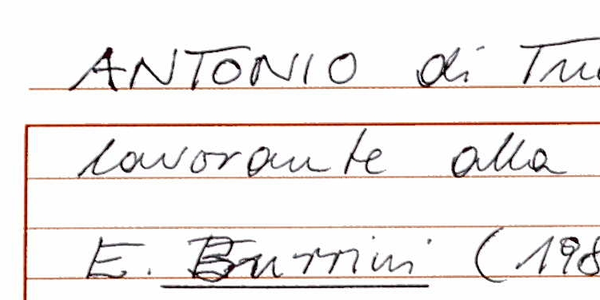 ANTONIO di Tru
lavorante alla
E. Burrini (198